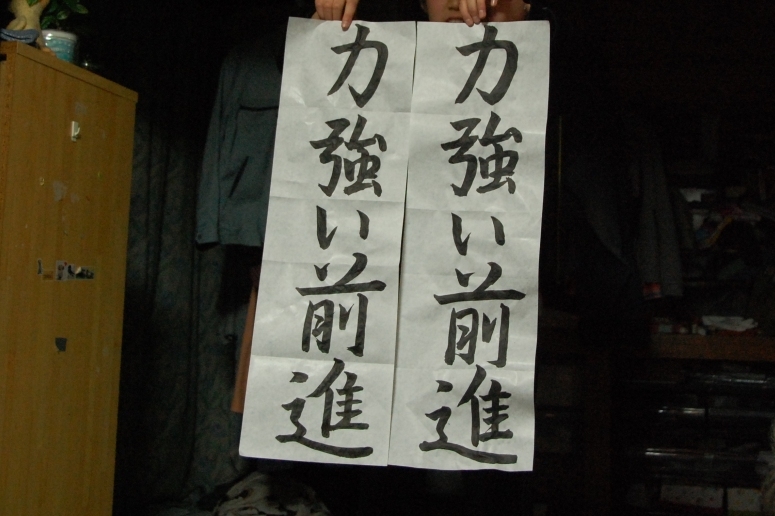 力強い前進
力強い前進